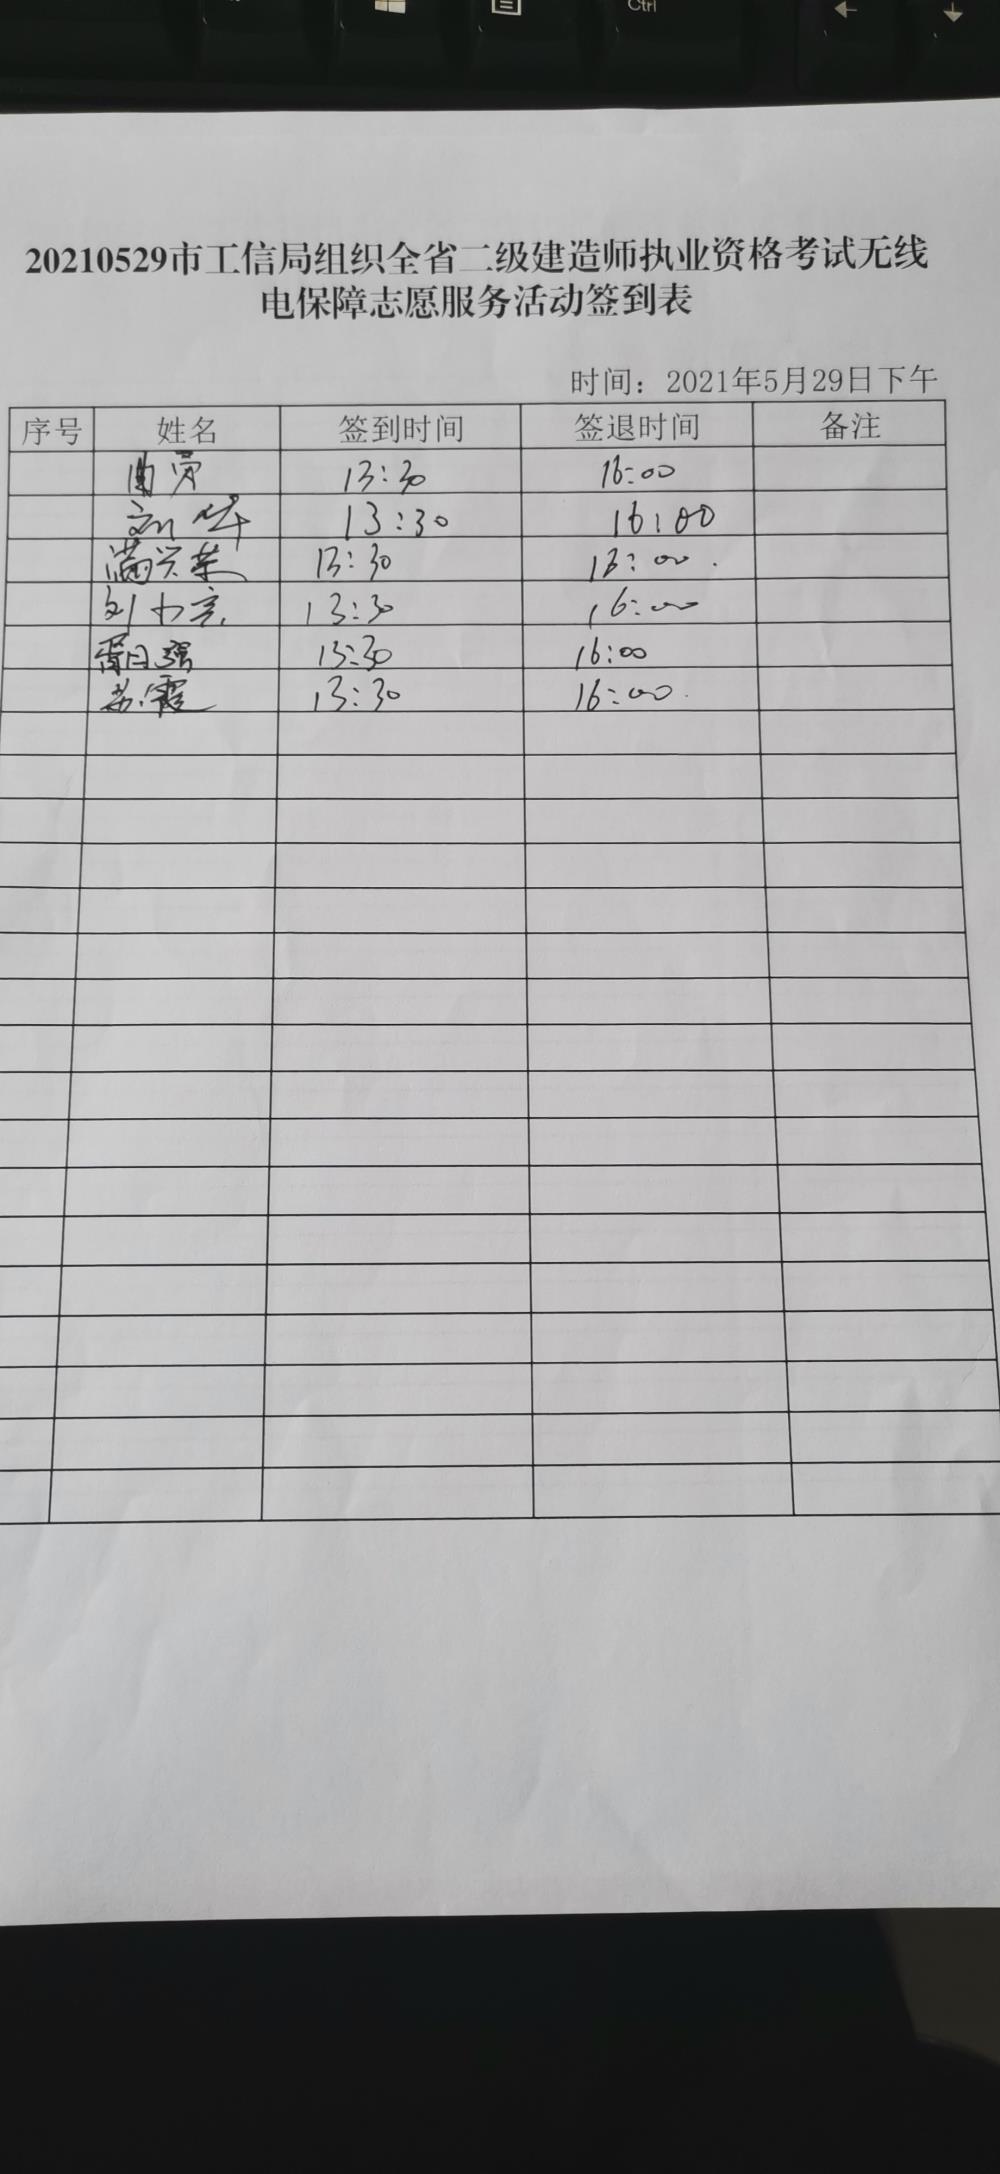 Ctrl
20210529市工信局组织全省二级建造师执业资格考试无线
电保障志愿服务活动签到表
时间：2021年5月29日下午
序号 姓名 签到时间 签退时间 备注
13:30 16:00
刘华 13:30 16:00
满兴荣 13:30 16:00
刘 13:30 16:00
强 13:30 16:00
苏霞 13:30 16:00